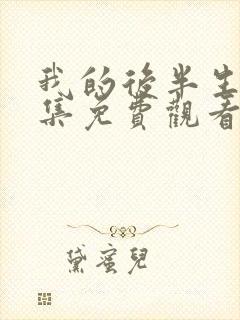 我的後半生
集免費觀看
黛蜜兒